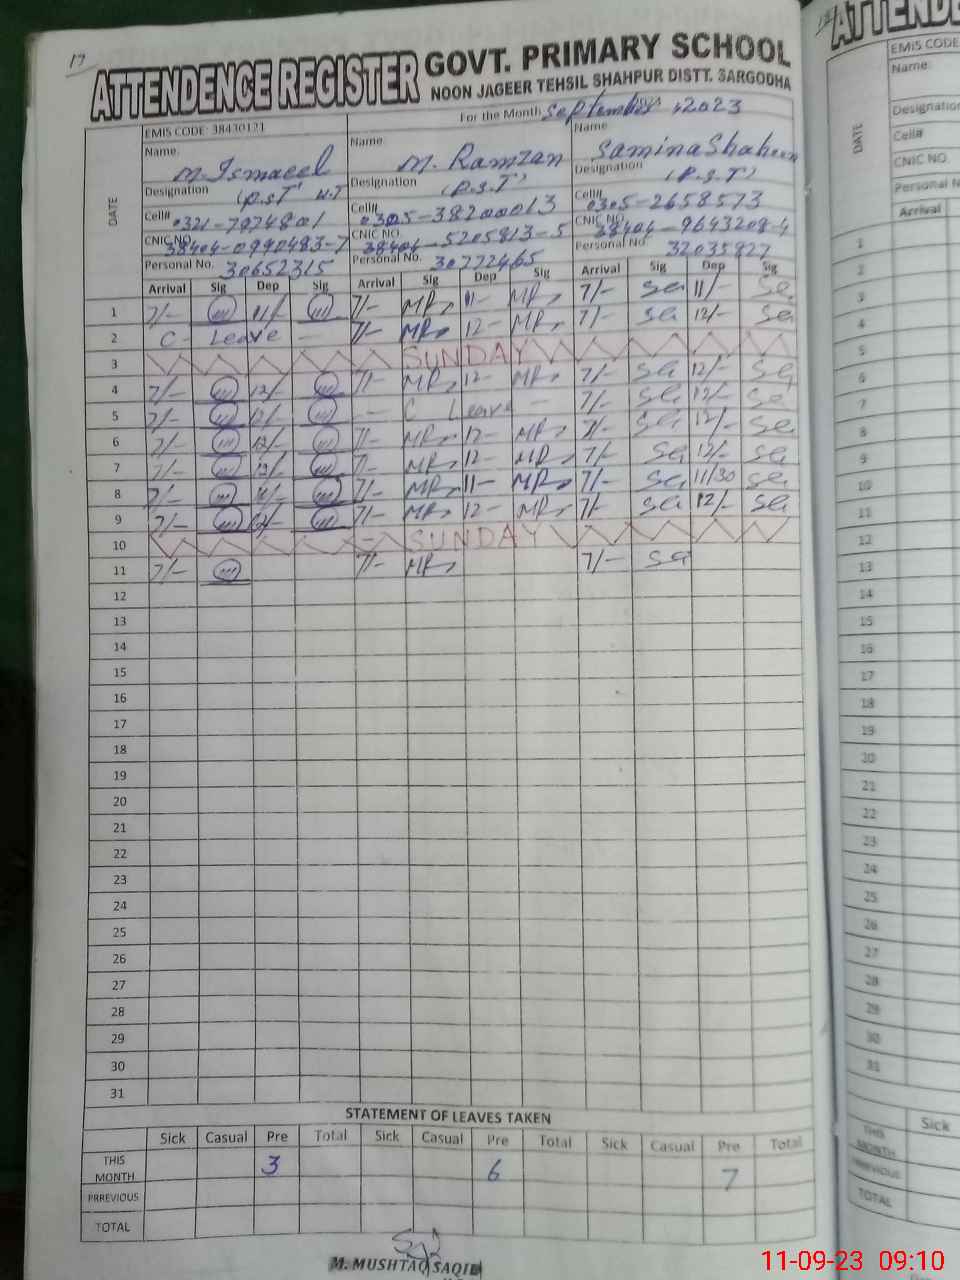 17
ATTENDENCE REGISTER GOVT. PRIMARY SCHOOL
NOON JAGEER TEHSIL SHAHPUR DISTT. SARGODHA
For the Month September 2023
DATE
EMIS CODE: 38430121
Name. M. Ismaeel Name. M. Ramzan Name Samina Shaheen
Designation (P.S.T) H.T Designation (P.S.T) Designation (P.S.T)
Cell# 0321-7974801 Cell# 0305-38200013 Cell# 0305-2658573
CNIC NO. 38404-0990483-7 CNIC NO. 38404-5205813-5 CNIC NO. 38404-9643208-4
Personal No. 30652315 Personal No. 30772465 Personal No. 32035827
Arrival Sig Dep Sig Arrival Sig Dep Sig Arrival Sig Dep Sig
1 7/- 11/- 7/- MR 11- MR 7/- Sa 11/- Sa
2 C- Leave - 7/- MR 12- MR 7/- Sa 12/- Sa
3 SUNDAY
4 7/- 12/- 7/- MR 12- MR 7/- Sa 12/- Sa
5 7/- 12/- -- C Leave - 7/- Sa 12/- Sa
6 7/- 12/- 7/- MR 12- MR 7/- Sa 12/- Sa
7 7/- 12/- 7/- MR 12- MR 7/- Sa 12/- Sa
8 7/- 11/- 7/- MR 11- MR 7/- Sa 11/30 Sa
9 7/- 12/- 7/- MR 12- MR 7/- Sa 12/- Sa
10 SUNDAY
11 7/- 7/- MR 7/- Sa
12
13
14
15
16
17
18
19
20
21
22
23
24
25
26
27
28
29
30
31
STATEMENT OF LEAVES TAKEN
Sick Casual Pre Total Sick Casual Pre Total Sick Casual Pre Total
THIS MONTH 3 6 7
PRREVIOUS
TOTAL
M. MUSHTAQ SAQIB
ATTENDE
EMIS CODE
Name:
Designation
Cell#
CNIC NO.
Personal N
DATE
Arrival
1
2
3
4
5
6
7
8
9
10
11
12
13
14
15
16
17
18
19
20
21
22
23
24
25
26
27
28
29
30
31
Sick
THIS
MONTH
PRREVIOUS
TOTAL
11-09-23 09:10